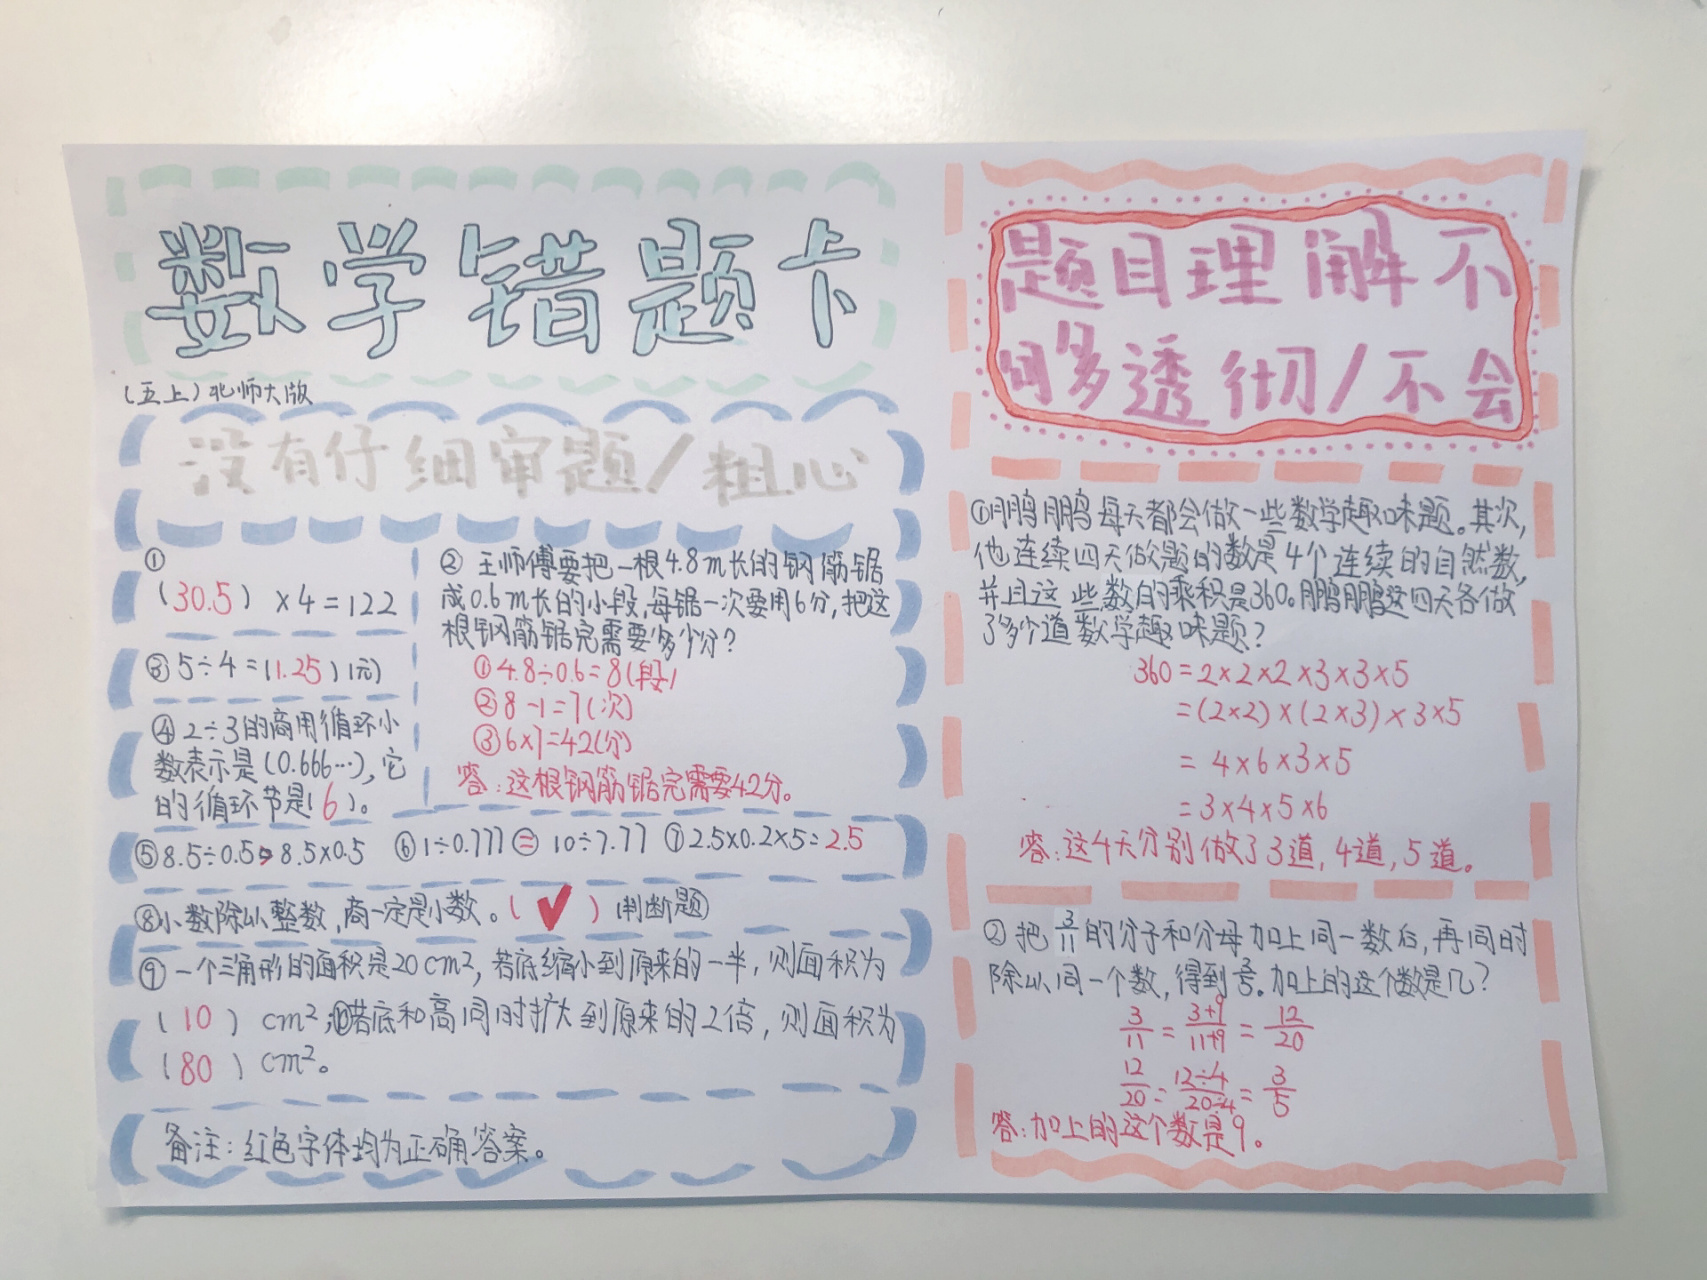 数学错题卡
(五上)北师大版
没有仔细审题/粗心
①
(30.5)×4=122
③5÷4=(1.25)(元)
④2÷3的商用循环小
数表示是(0.666…),它
的循环节是(6)。
② 王师傅要把一根4.8m长的钢筋锯
成0.6m长的小段,每锯一次要用6分,把这
根钢筋锯完需要多少分?
①4.8÷0.6=8(段)
②8-1=7(次)
③6×7=42(分)
答:这根钢筋锯完需要42分。
⑤8.5÷0.5>8.5×0.5 ⑥1÷0.777=10÷7.77 ⑦2.5×0.2×5=2.5
⑧小数除以整数,商一定是小数。(✓)判断题
⑨一个三角形的面积是20cm²,若底缩小到原来的一半,则面积为
(10)cm²;⑩若底和高同时扩大到原来的2倍,则面积为
(80)cm²。
备注:红色字体均为正确答案。
题目理解不
够透彻/不会
①鹏鹏每天都会做一些数学趣味题。其次,
他连续四天做题的数是4个连续的自然数,
并且这些数的乘积是360。鹏鹏这四天各做
了多个道数学趣味题?
360=2×2×2×3×3×5
=(2×2)×(2×3)×3×5
=4×6×3×5
=3×4×5×6
答:这4天分别做了3道,4道,5道。
②把3/11的分子和分母加上同一数后,再同时
除以同一个数,得到3/5。加上的这个数是几?
3/11=3+9/11+9=12/20
12/20=12÷4/20÷4=3/5
答:加上的这个数是9。